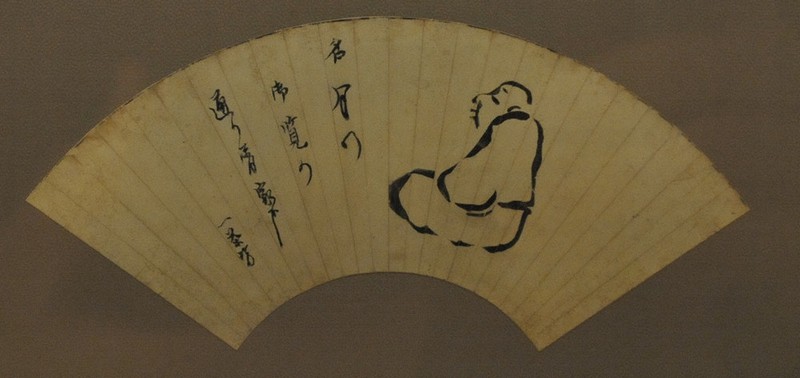 名月の
御覧の
通り屑家哉
一茶坊